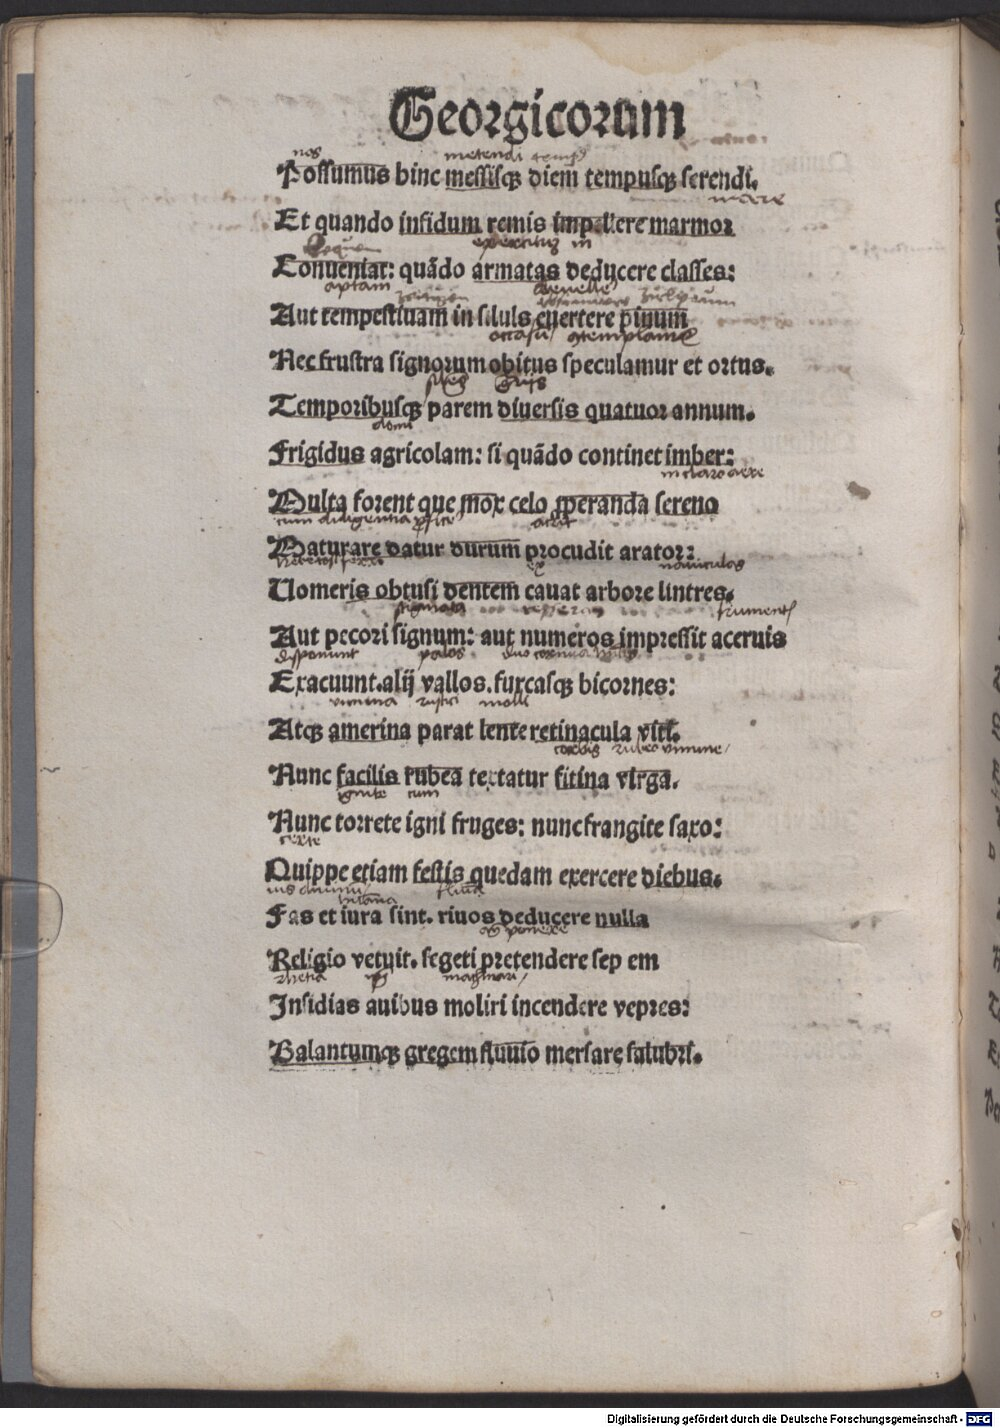 Georgicorum
nos metendi
Possumus hinc messisqꝫ diem tempusqꝫ serendi.
mare
Et quando infidum remis impellere marmor
exercitus in
Conueniat: quādo armatas deducere classes:
aptam
Aut tempestiuam in siluis euertere pinum
occasus
Nec frustra signorum obitus speculamur et ortus.
Temporibusqꝫ parem diuersis quatuor annum.
domi
Frigidus agricolam: si quādo continet imber:
in claro aere
Multa forent que mox celo properanda sereno
cum diligentia
Maturare datur durum procudit arator:
ex nauiculas
Uomeris obtusi dentem cauat arbore lintres.
frumenti
Aut pecori signum: aut numeros impressit aceruis
disponunt palos
Exacuunt. alij vallos. furcasqꝫ bicornes:
vimina molli
Atqꝫ amerina parat lente retinacula viti.
rubeo vimine
Nunc facilis rubea textatur fitina virga.
ignite cum
Nunc torrete igni fruges: nunc frangite saxo:
certe
Quippe etiam festis quedam exercere diebus.
ius diuinum humana
Fas et iura sint. riuos deducere nulla
ponere
Religio vetuit. segeti pretendere sep em
machinari
Insidias auibus moliri incendere vepres:
Balantumqꝫ gregem fluuio mersare salubri.
Digitalisierung gefördert durch die Deutsche Forschungsgemeinschaft - DFG